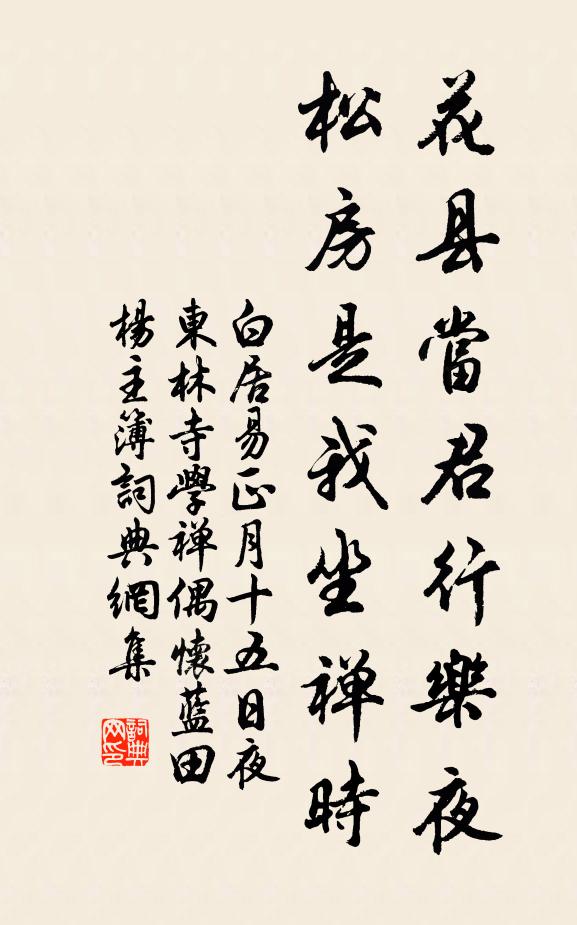 花县當君行樂夜
松房是我坐禅時
白居易正月十五日夜
東林寺學禅偶懷藍田
楊主簿詞典網集
詞典网印